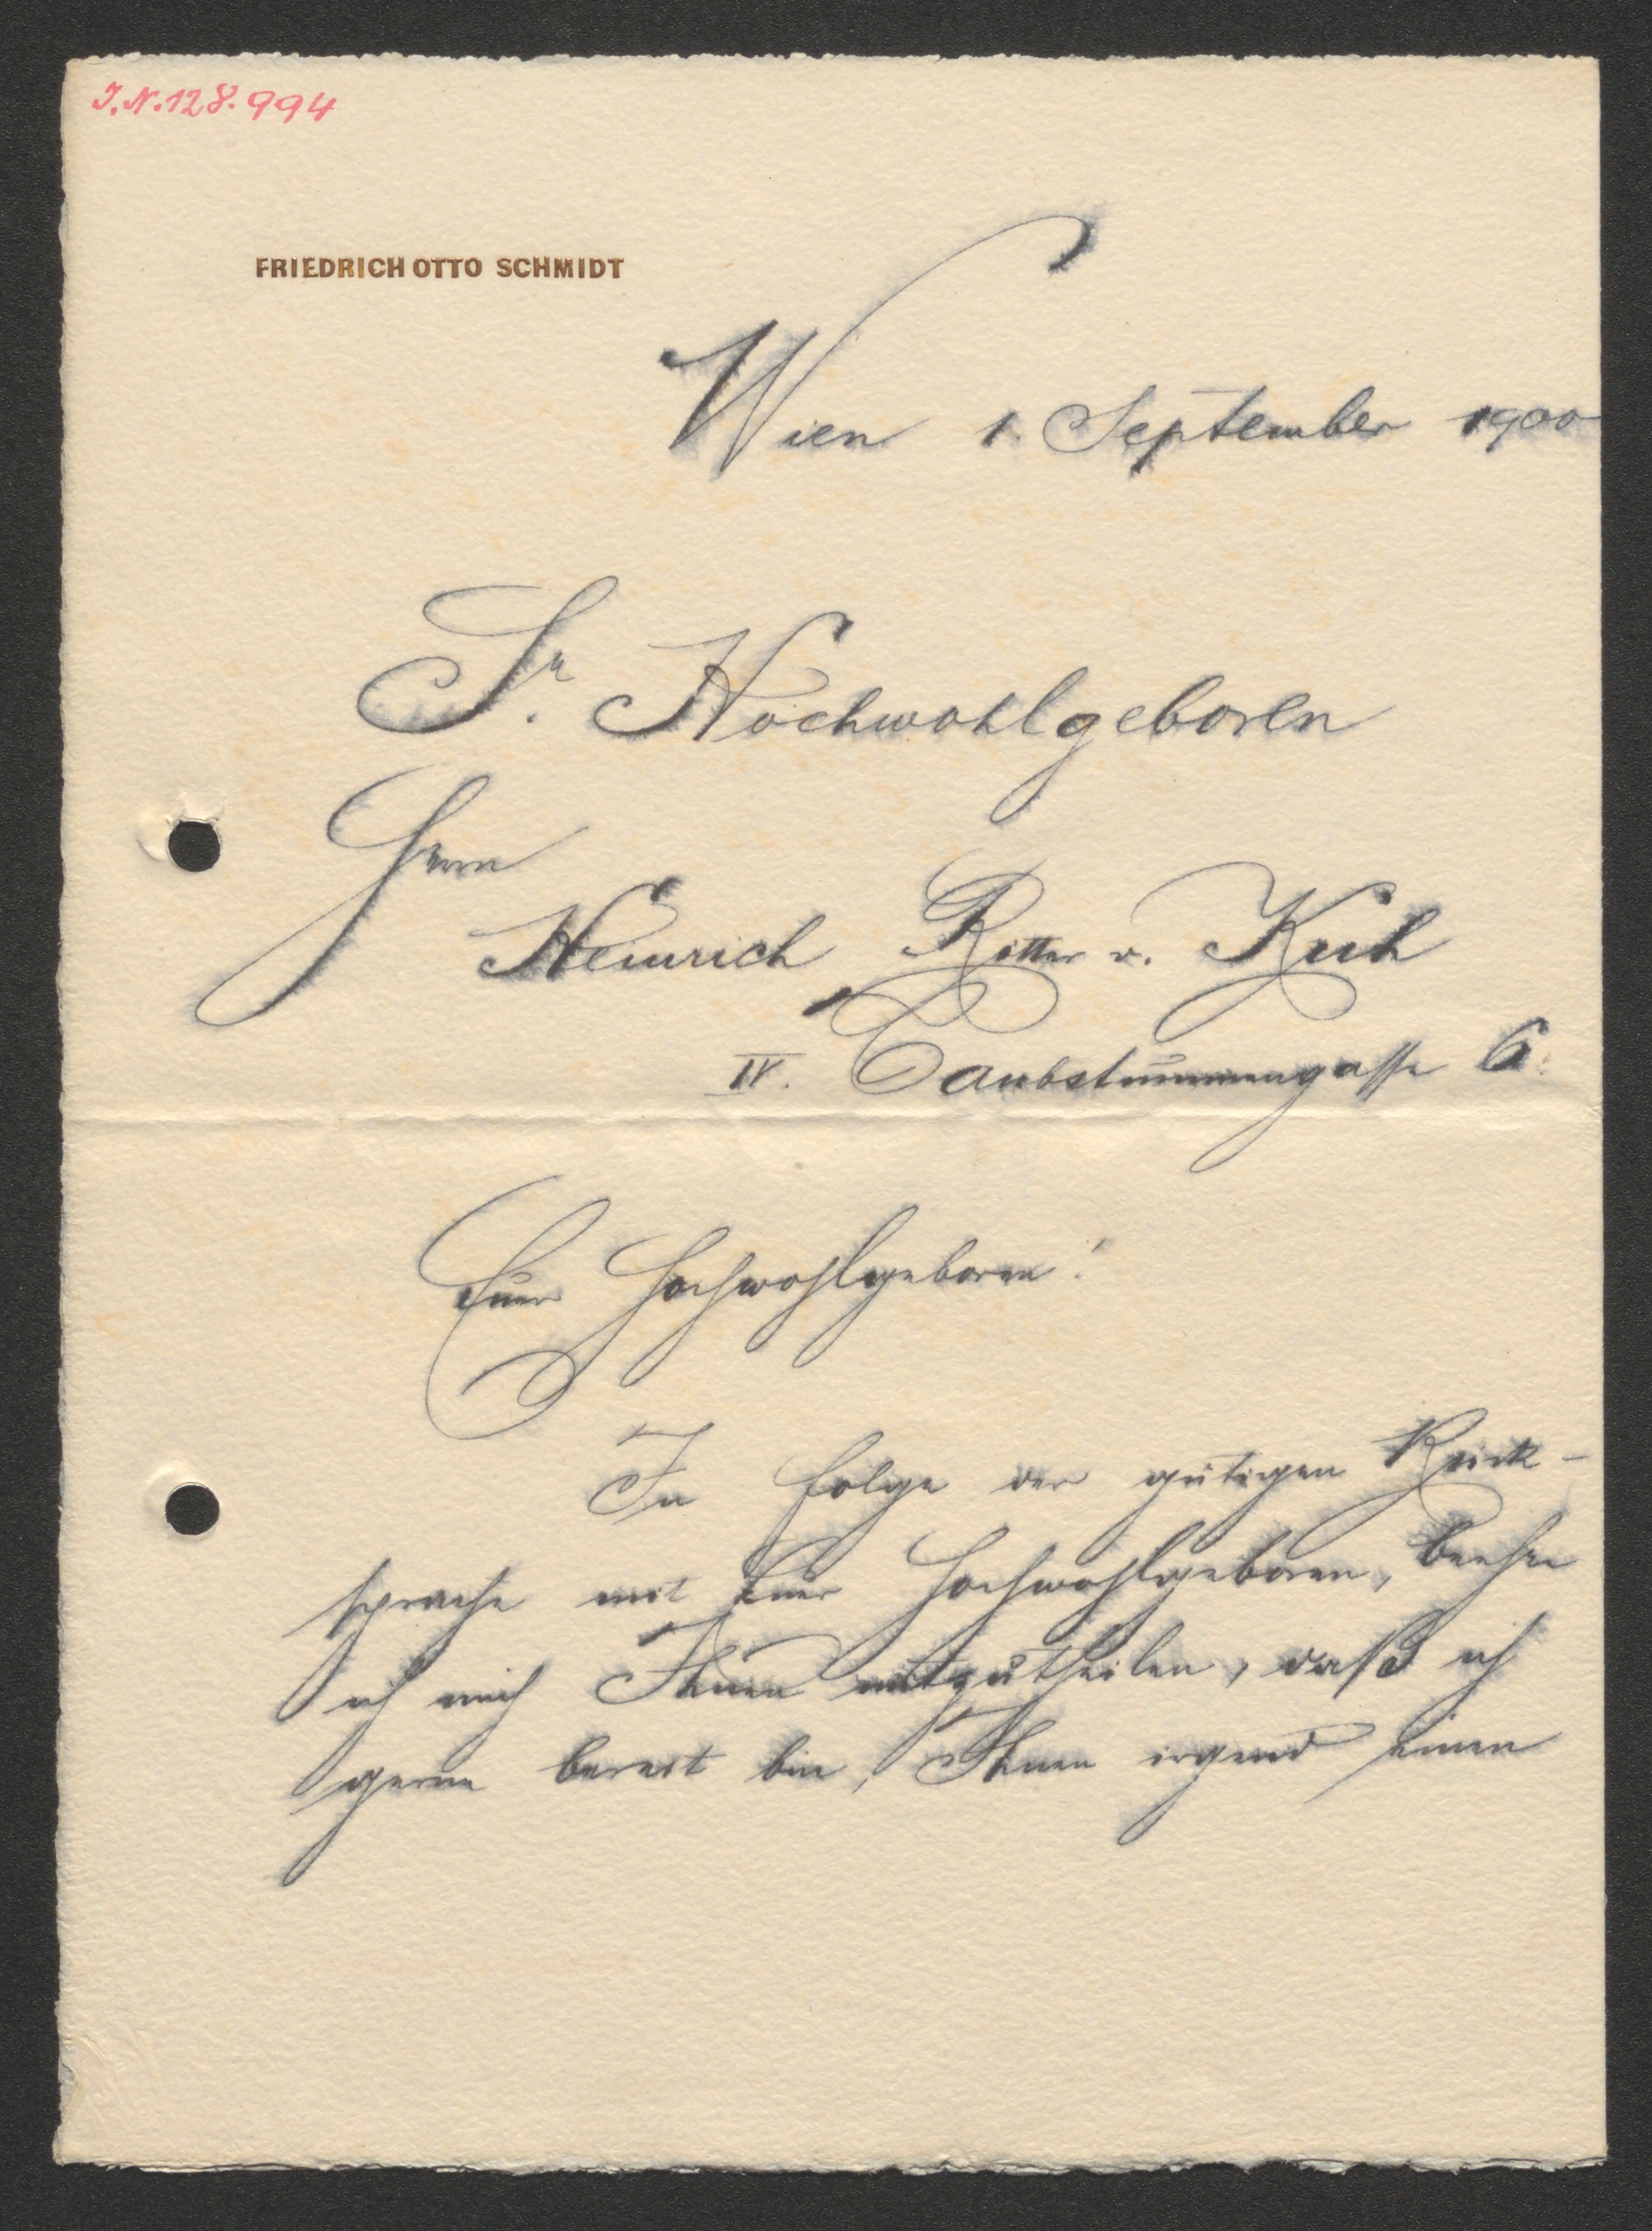 J.N.128.994
FRIEDRICH OTTO SCHMIDT
Wien 1. September 1900
Sr. Hochwohlgeboren
Herrn
Heinrich Ritter v. Kuh
IV. Taubstummengasse 6.
Euer Hochwohlgeboren!
In folge der gütigen Rück-
sprache mit Euer Hochwohlgeboren, beehre
ich mich Ihnen mitzutheilen, daß ich
gerne bereit bin, Ihnen irgend einen